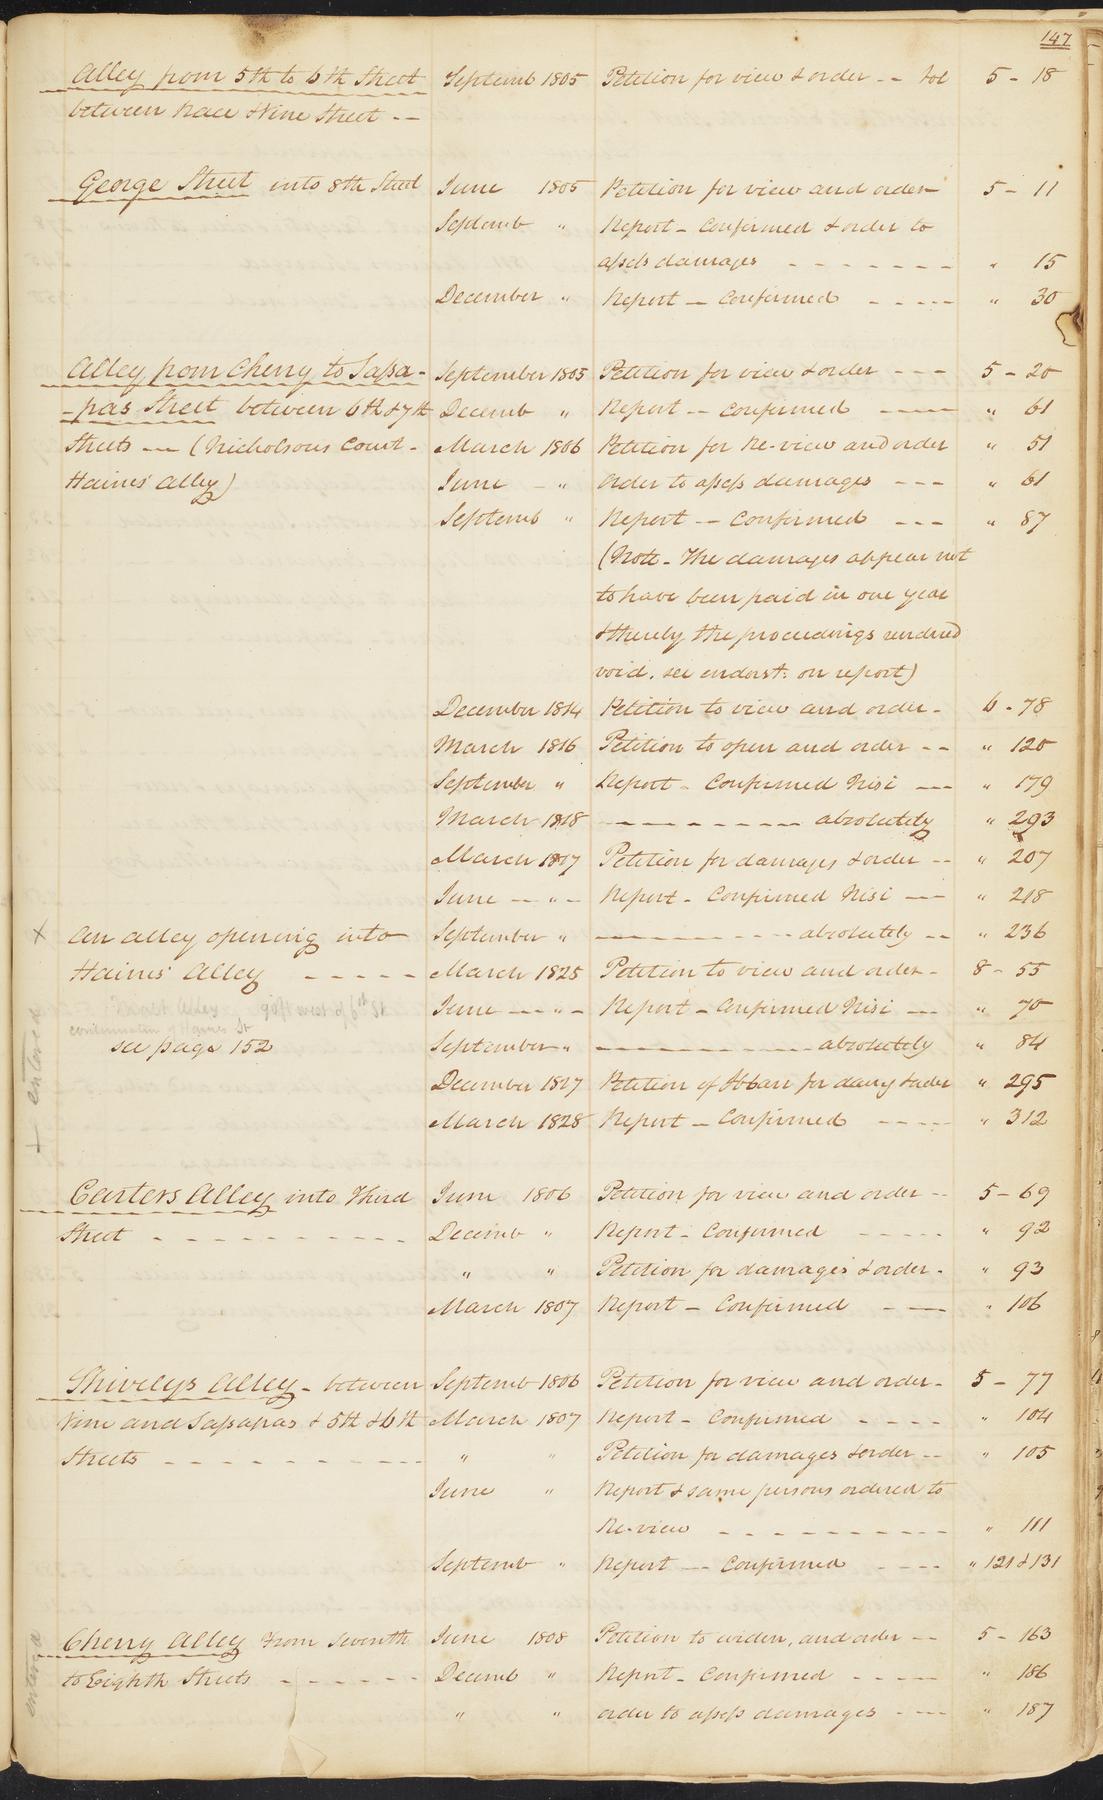 147
Alley from 5th to 6th Street Septemb 1805 Petition for view & order -- Vol 5 - 18
between Race & Vine Street --
George Street into 8th Street June 1805 Petition for view and order 5 - 11
Septemb " Report - Confirmed & order to
assess damages - - - - - - - " 15
December " Report - Confirmed - - - - " 30
Alley from Cherry to Sassa- September 1805 Petition for view & order - - - 5 - 20
-fras Street between 6th & 7th Decemb " Report -- Confirmed ---- " 61
Streets -- (Nicholsons Court- March 1806 Petition for Re-view and order " 51
Haines' Alley) June - " Order to assess damages - - - " 61
Septemb " Report -- Confirmed - - - " 87
(Note - The damages appear not
to have been paid in one year
& thereby the proceedings rendered
void. see endorst: on report)
December 1814 Petition to view and order - 6 - 78
March 1816 Petition to open and order - - " 120
September " Report - Confirmed Nisi --- " 179
March 1818 - - - - - - - - absolutely " 293
March 1817 Petition for damages & order -- " 207
June -- " - Report - Confirmed Nisi --- " 218
x An alley opening into September " - - - - - - - - absolutely -- " 236
Haines' Alley - - - - - March 1825 Petition to view and order - 8 - 55
90ft west of 6th St June -- " - Report - Confirmed Nisi --- " 70
continuation of Haines St
see page 152 September " - - - - - - - - absolutely " 84
+ entered December 1827 Petition of for damg & order " 295
March 1828 Report - Confirmed - - - - " 312
Carters Alley into Third June 1806 Petition for view and order -- 5 - 69
Street - - - - - - - - - - Decemb " Report - Confirmed - - - - - " 92
" " Petition for damages & order - " 93
March 1807 Report - Confirmed - --- " 106
Shivelys Alley - between Septemb 1806 Petition for view and order - 5 - 77
Vine and Sassafras & 5th & 6th March 1807 Report - Confirmed - - - - " 104
Streets - - - - - - - - - " " Petition for damages & order -- " 105
June " Report & same persons ordered to
Re-view - - - - - - - - - - " 111
Septemb " Report -- Confirmed - - - - " 121 & 131
entered Cherry Alley from Seventh June 1808 Petition to widen, and order -- 5 - 163
to Eighth Streets - - - - - - Decemb " Report - Confirmed - - - - " 186
" " order to assess damages - --- " 187